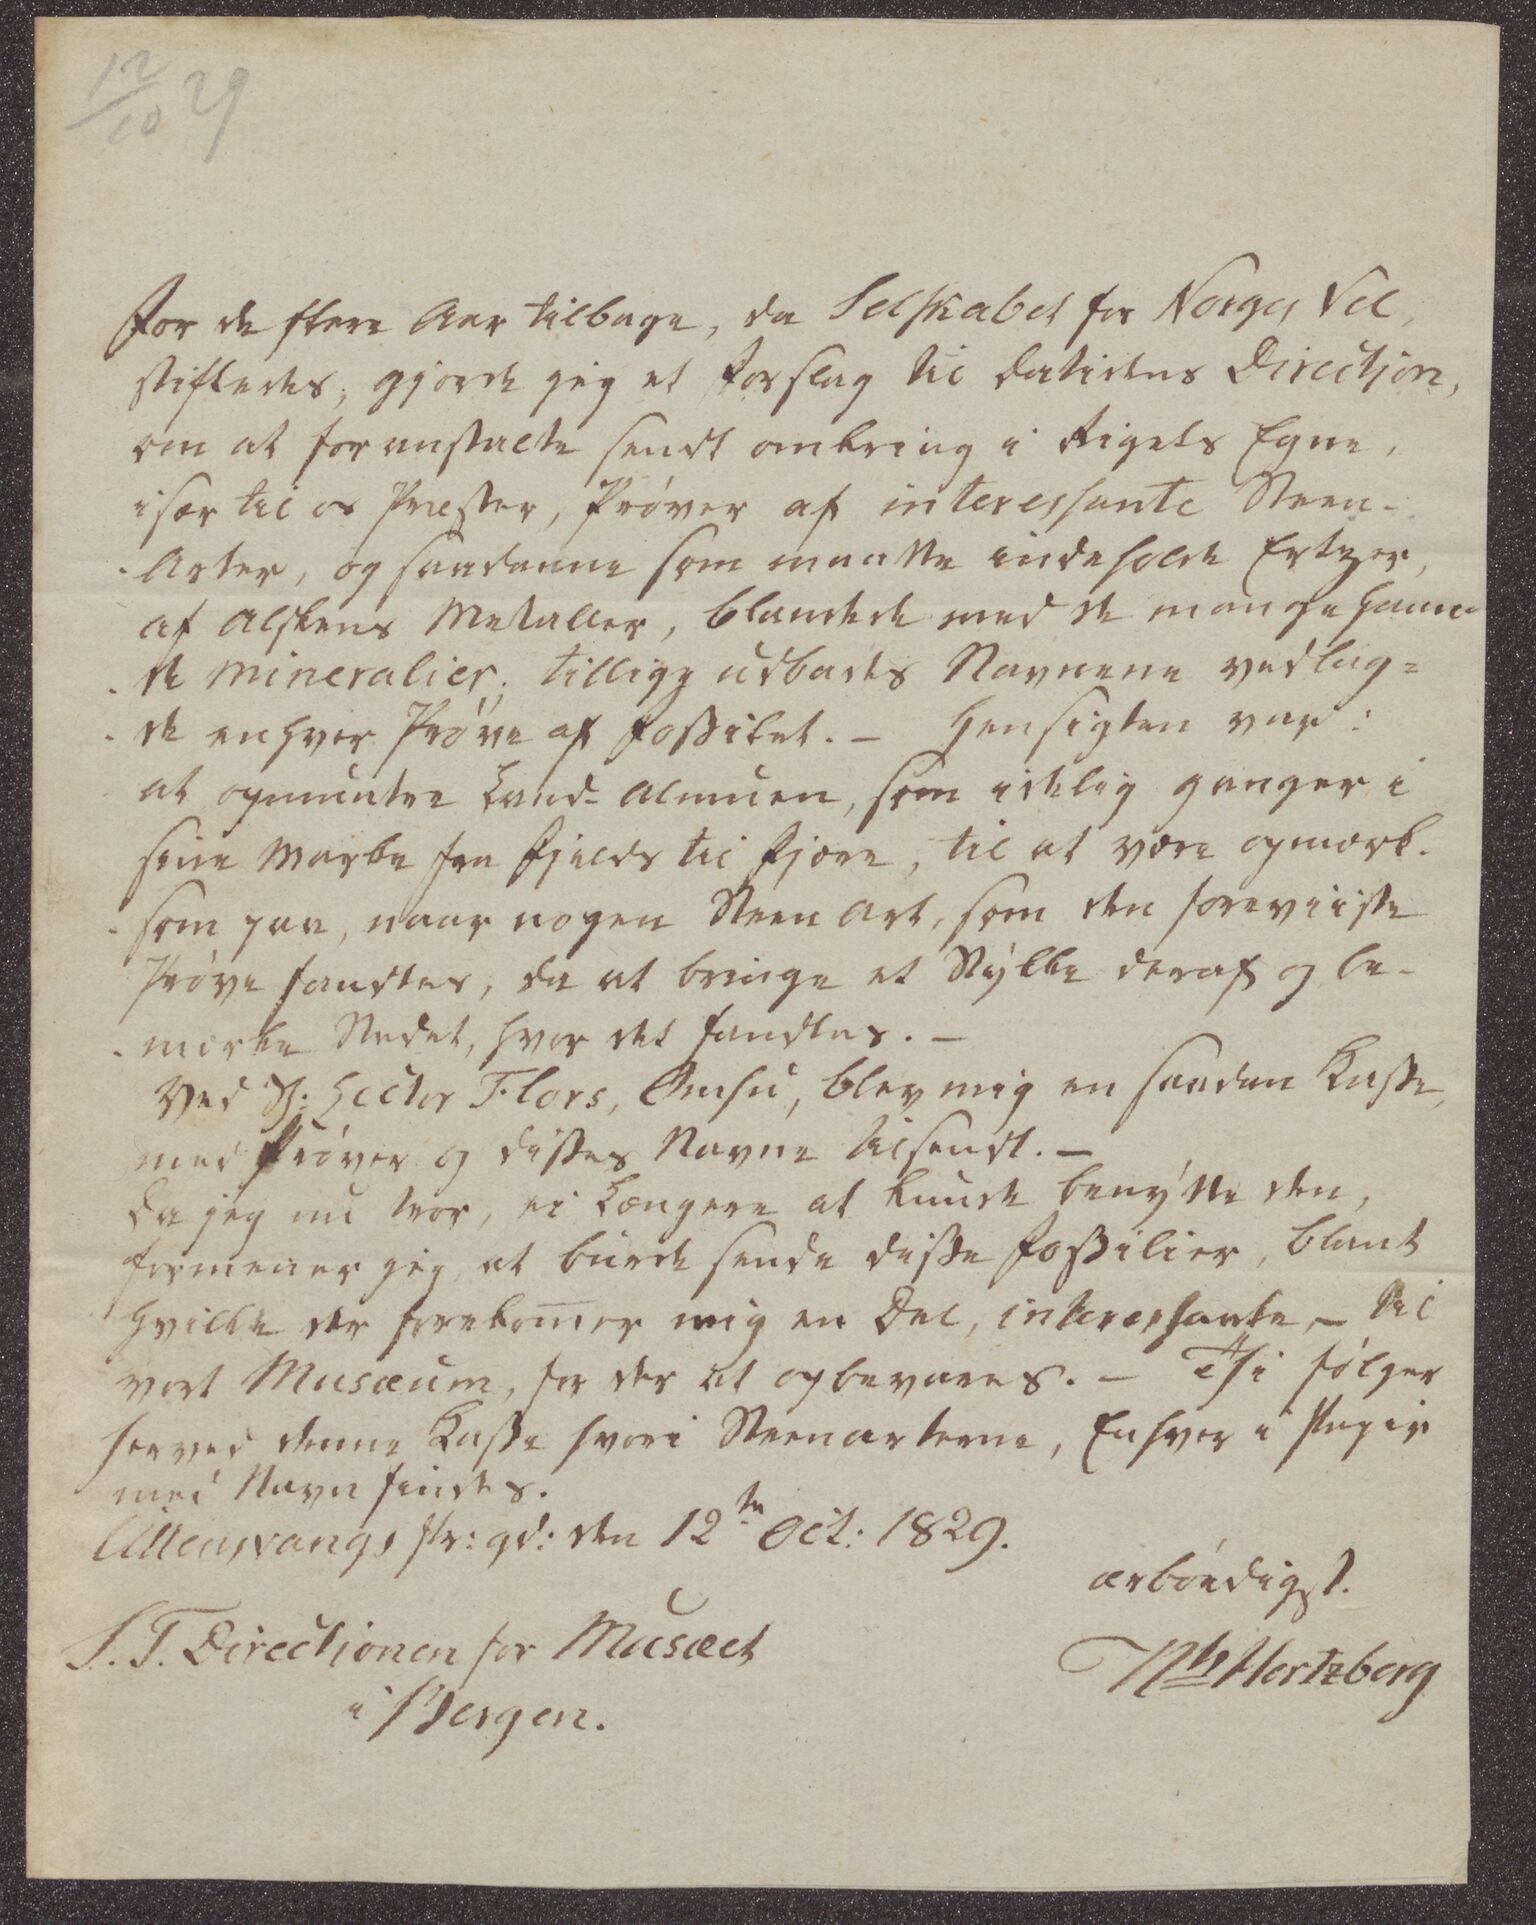 12/10 29
For de flere Aar tilbage, da Selskabet for Norges Vel,
stiftedes, gjorde jeg et Forslag til datidens Directjon,
om at foranstalte sendt omkring i Rigets Egne,
især til os Præster, Prøver af interessante Steen-
Arter, og saadanne som maatte indeholde Ertzer,
af Alskens Metaller, blandede med de mange Haan-
de Mineralier; tilligg udbades Navnene vedlag=
de enhver Prøve af Fossilet. — Hensigten var:
at opmuntre Land-Almuen, som idelig ganger i
sine Marke fra Fjelds til Fjære, til at være opmærk-
som paa, naar nogen Steen Art, som den foreviiste
Prøve fandtes, da at bringe et Stykke deraf og be-
mærke Stedet, hvor det fandtes. —
Ved Hector Flors, Omsu, blev mig en saadan Kasse,
med Prøver og disses Navne tilsendt. —
Da jeg nu troer, ei Længere at kunde benytte den,
formener jeg at burde sende disse Fossilier, blant
hvilke der forekom̄er mig en Del, interessante, — til
vort Musæum, for der at opbevares. — følger
herved denne Kasse hvori Steenarterne, Enhver i Papir
med Navn findes.
Ullensvangs Pr: gd: den 12te Oct: 1829.
ærbödigst.
S. T. Directionen for Musæet
i Bergen.
Ns Hertzberg